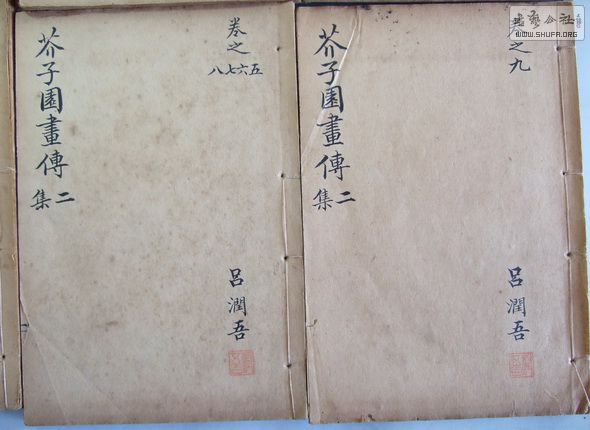 卷之九
芥子園畫傳
二集
呂潤吾
卷之
五六七八
芥子園畫傳
二集
呂潤吾
WWW.SHUFA.ORG